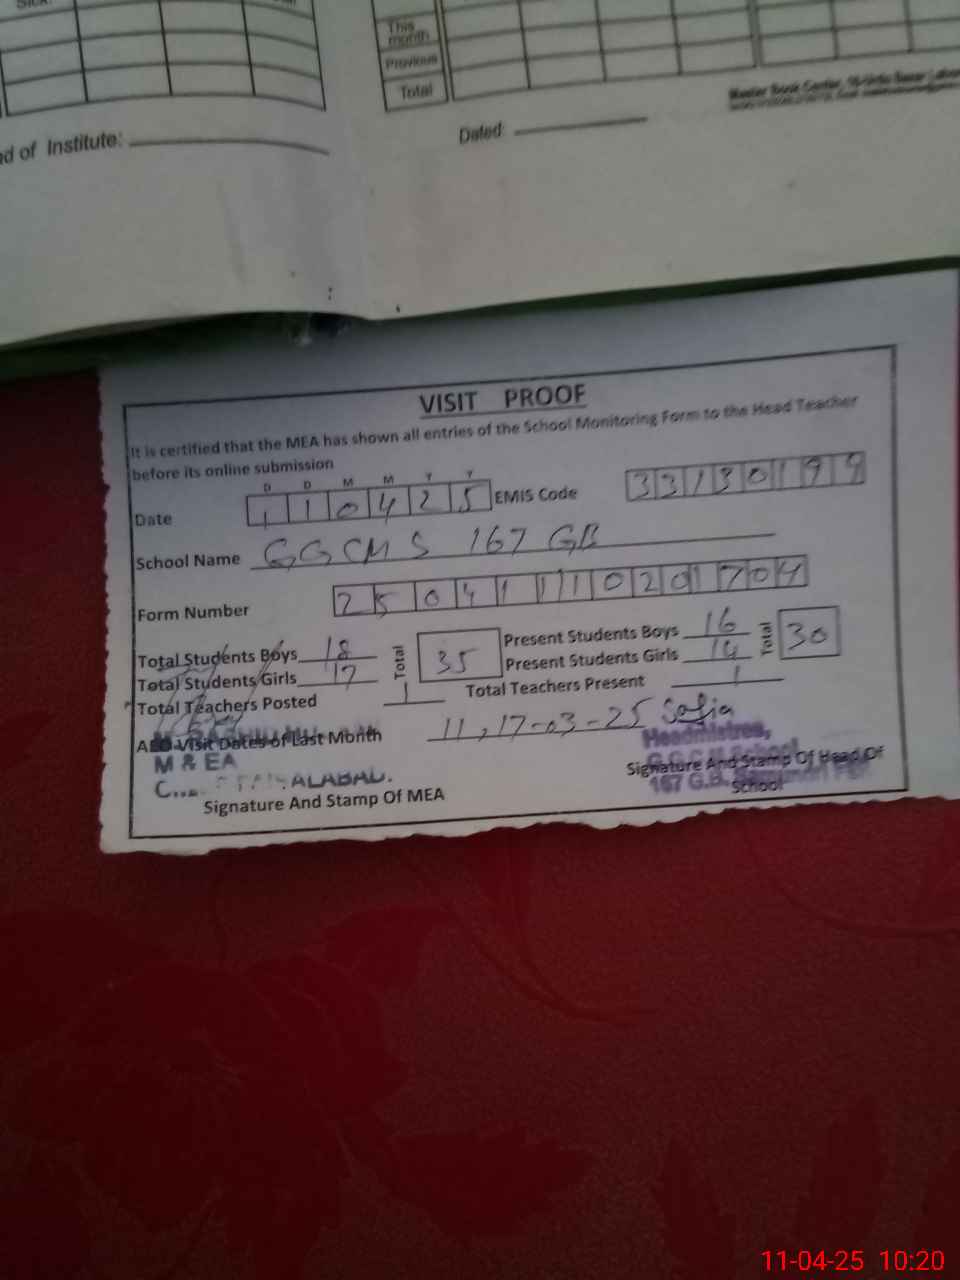 This month
Previous
Total
d of Institute:
Dated:
VISIT PROOF
It is certified that the MEA has shown all entries of the School Monitoring Form to the Head Teacher
before its online submission
D D M M Y Y
Date 1 1 0 4 2 5 EMIS Code 3 3 1 3 0 1 9 9
School Name GGCMS 167 GB
Form Number 2 5 0 4 1 1 1 0 2 0 1 7 0 4
Total Students Boys 18 Total 35 Present Students Boys 16 Total 30
Total Students Girls 17 Present Students Girls 14
Total Teachers Posted 1 Total Teachers Present 1
AEO Visit Dates of Last Month 11, 17-03-25 Safia
Headmistres,
M & EA
ALABAD.
Signature And Stamp Of MEA
Signature And Stamp Of Head Of
School
167 G.B.
11-04-25 10:20